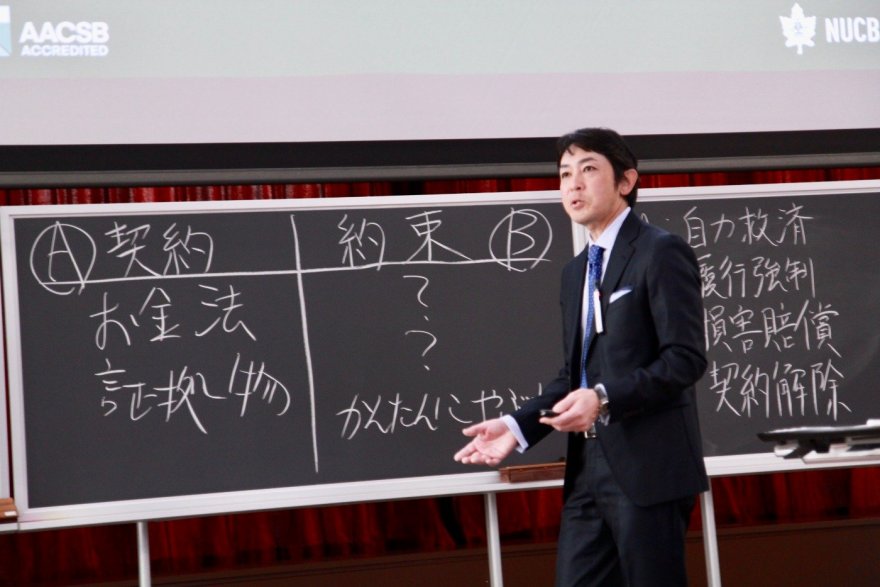 AACSB
ACCREDITED
NUCB
Ⓐ 契約
約束 Ⓑ
お金 法
証拠物
?
?
かんたんにやぶ
自力救済
履行強制
損害賠償
契約解除